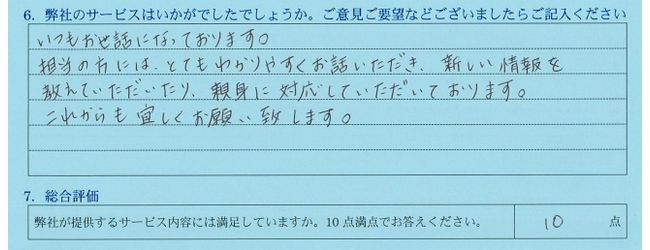 6. 弊社のサービスはいかがでしたでしょうか。ご意見ご要望などございましたらご記入ください
いつもお世話になっております。
担当の方には、とてもわかりやすくお話いただき、新しい情報を
教えていただいたり、親身に対応していただいております。
これからも宜しくお願い致します。
7. 総合評価
弊社が提供するサービス内容には満足していますか。10点満点でお答えください。 10 点